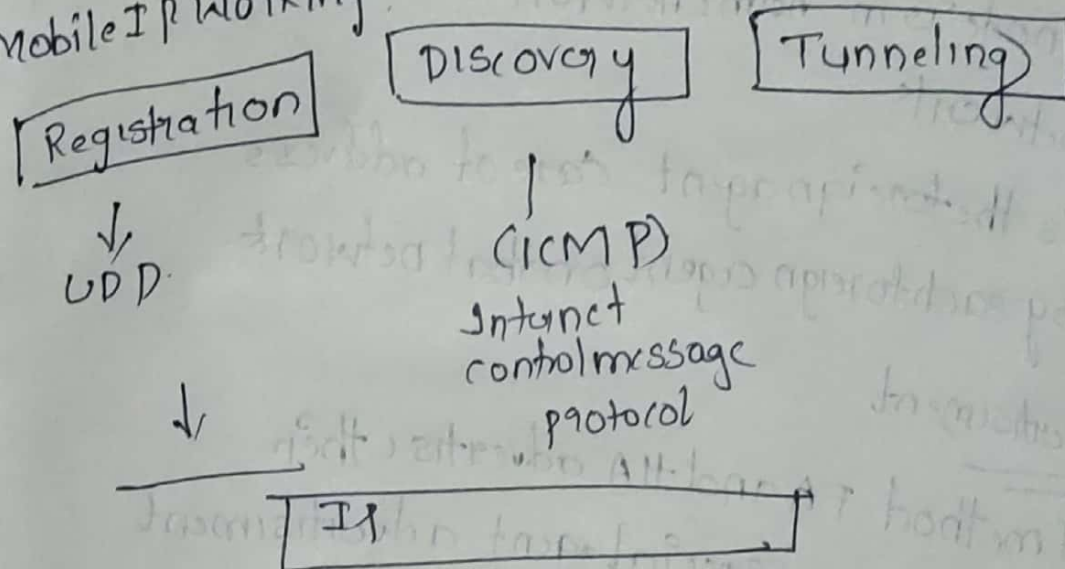 Mobile IP Working
Registration
Discovery
Tunneling
UDP
(ICMP)
Internet
control message
protocol
IP